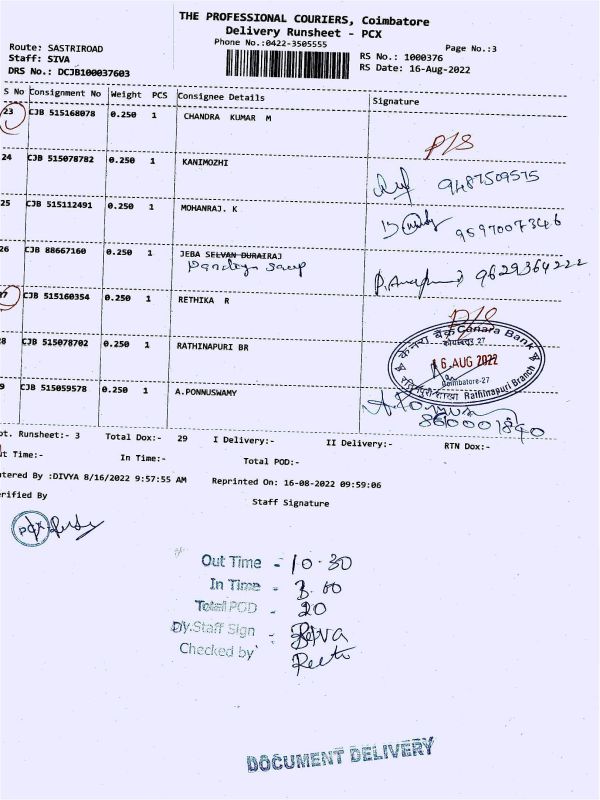 THE PROFESSIONAL COURIERS, Coimbatore
Delivery Runsheet - PCX
Phone No.:0422-3505555
Page No.:3
Route: SASTRIROAD
RS No.: 1000376
Staff: SIVA
RS Date: 16-Aug-2022
DRS No.: DCJB100037603
S No Consignment No Weight PCS Consignee Details Signature
23 CJB 515168078 0.250 1 CHANDRA KUMAR M
24 CJB 515078782 0.250 1 KANIMOZHI
9487509575
25 CJB 515112491 0.250 1 MOHANRAJ. K
9597007346
26 CJB 88667160 0.250 1 JEBA SELVAN DURAIRAJ
9629364222
27 CJB 515160354 0.250 1 RETHIKA R
केनरा बैंक Canara Bank
कोयंबत्तूर 27
28 CJB 515078702 0.250 1 RATHINAPURI BR
16 AUG 2022
Coimbatore-27
शाखा Rathinapuri Branch
9 CJB 515059578 0.250 1 A.PONNUSWAMY
8600001840
ot. Runsheet:- 3 Total Dox:- 29 I Delivery:- II Delivery:- RTN Dox:-
ut Time:- In Time:- Total POD:-
ntered By :DIVYA 8/16/2022 9:57:55 AM Reprinted On: 16-08-2022 09:59:06
erified By Staff Signature
PCX
Out Time - 10.30
In Time - 3.00
Total POD - 20
Dy.Staff Sign - Selva
Checked by
DOCUMENT DELIVERY